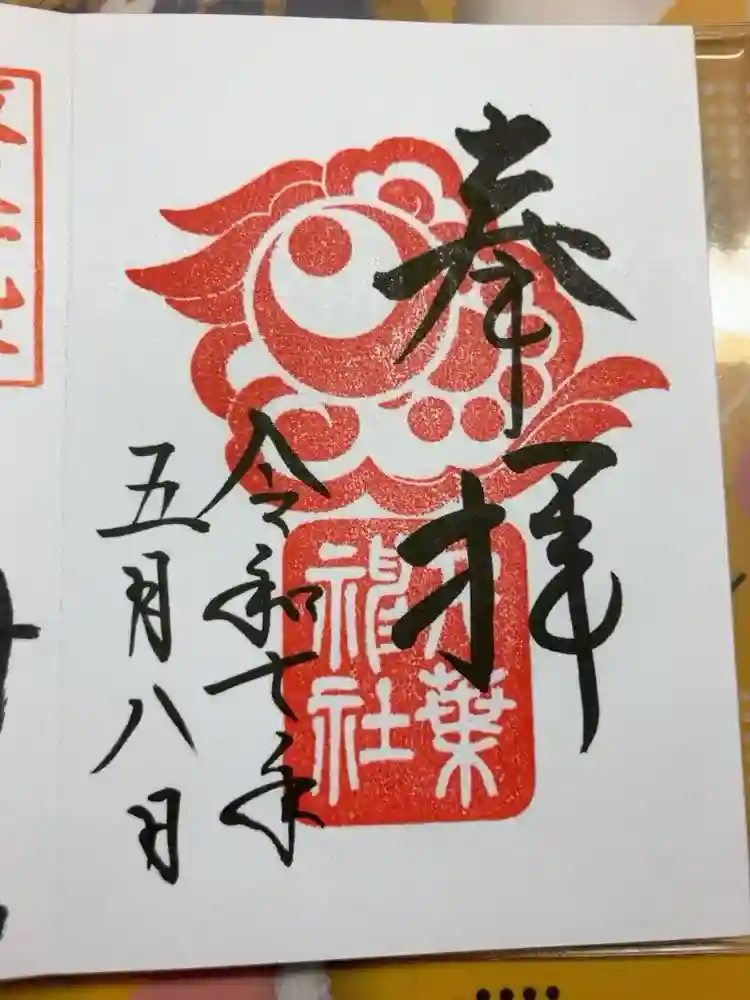 奉拝
葉
神社
令和七年
五月八日